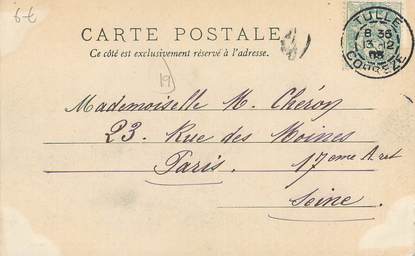 6€
CARTE POSTALE
Ce côté est exclusivement réservé à l'adresse.
TULLE
8 35
13 - 12
03
CORREZE
19
Mademoiselle M. Chéron
23. Rue des Moines
Paris. 17eme Arret
Seine.